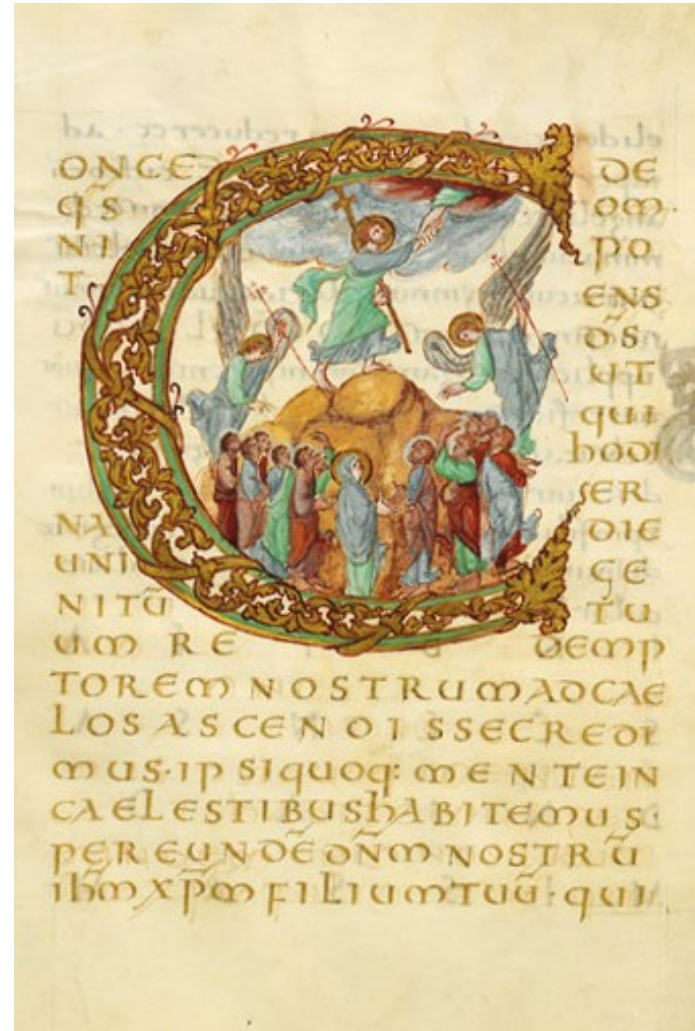 CONCE DE
q̄s om·
NI PO
T ENS
D̄S
UT
quI
hODI
ER
NA DIE
UNI GE
NITŪ TU
UM RE DEMP
TOREM NOSTRUMADCAE
LOS ASCENDISSECREDI
MUS·IPSIquOq: MENTEIN
CAELESTIBUShABITEMUS·
PEREUNDĒ DN̄M NOSTRŪ
ih̄m xp̄m FILIUMTUŪ·quI